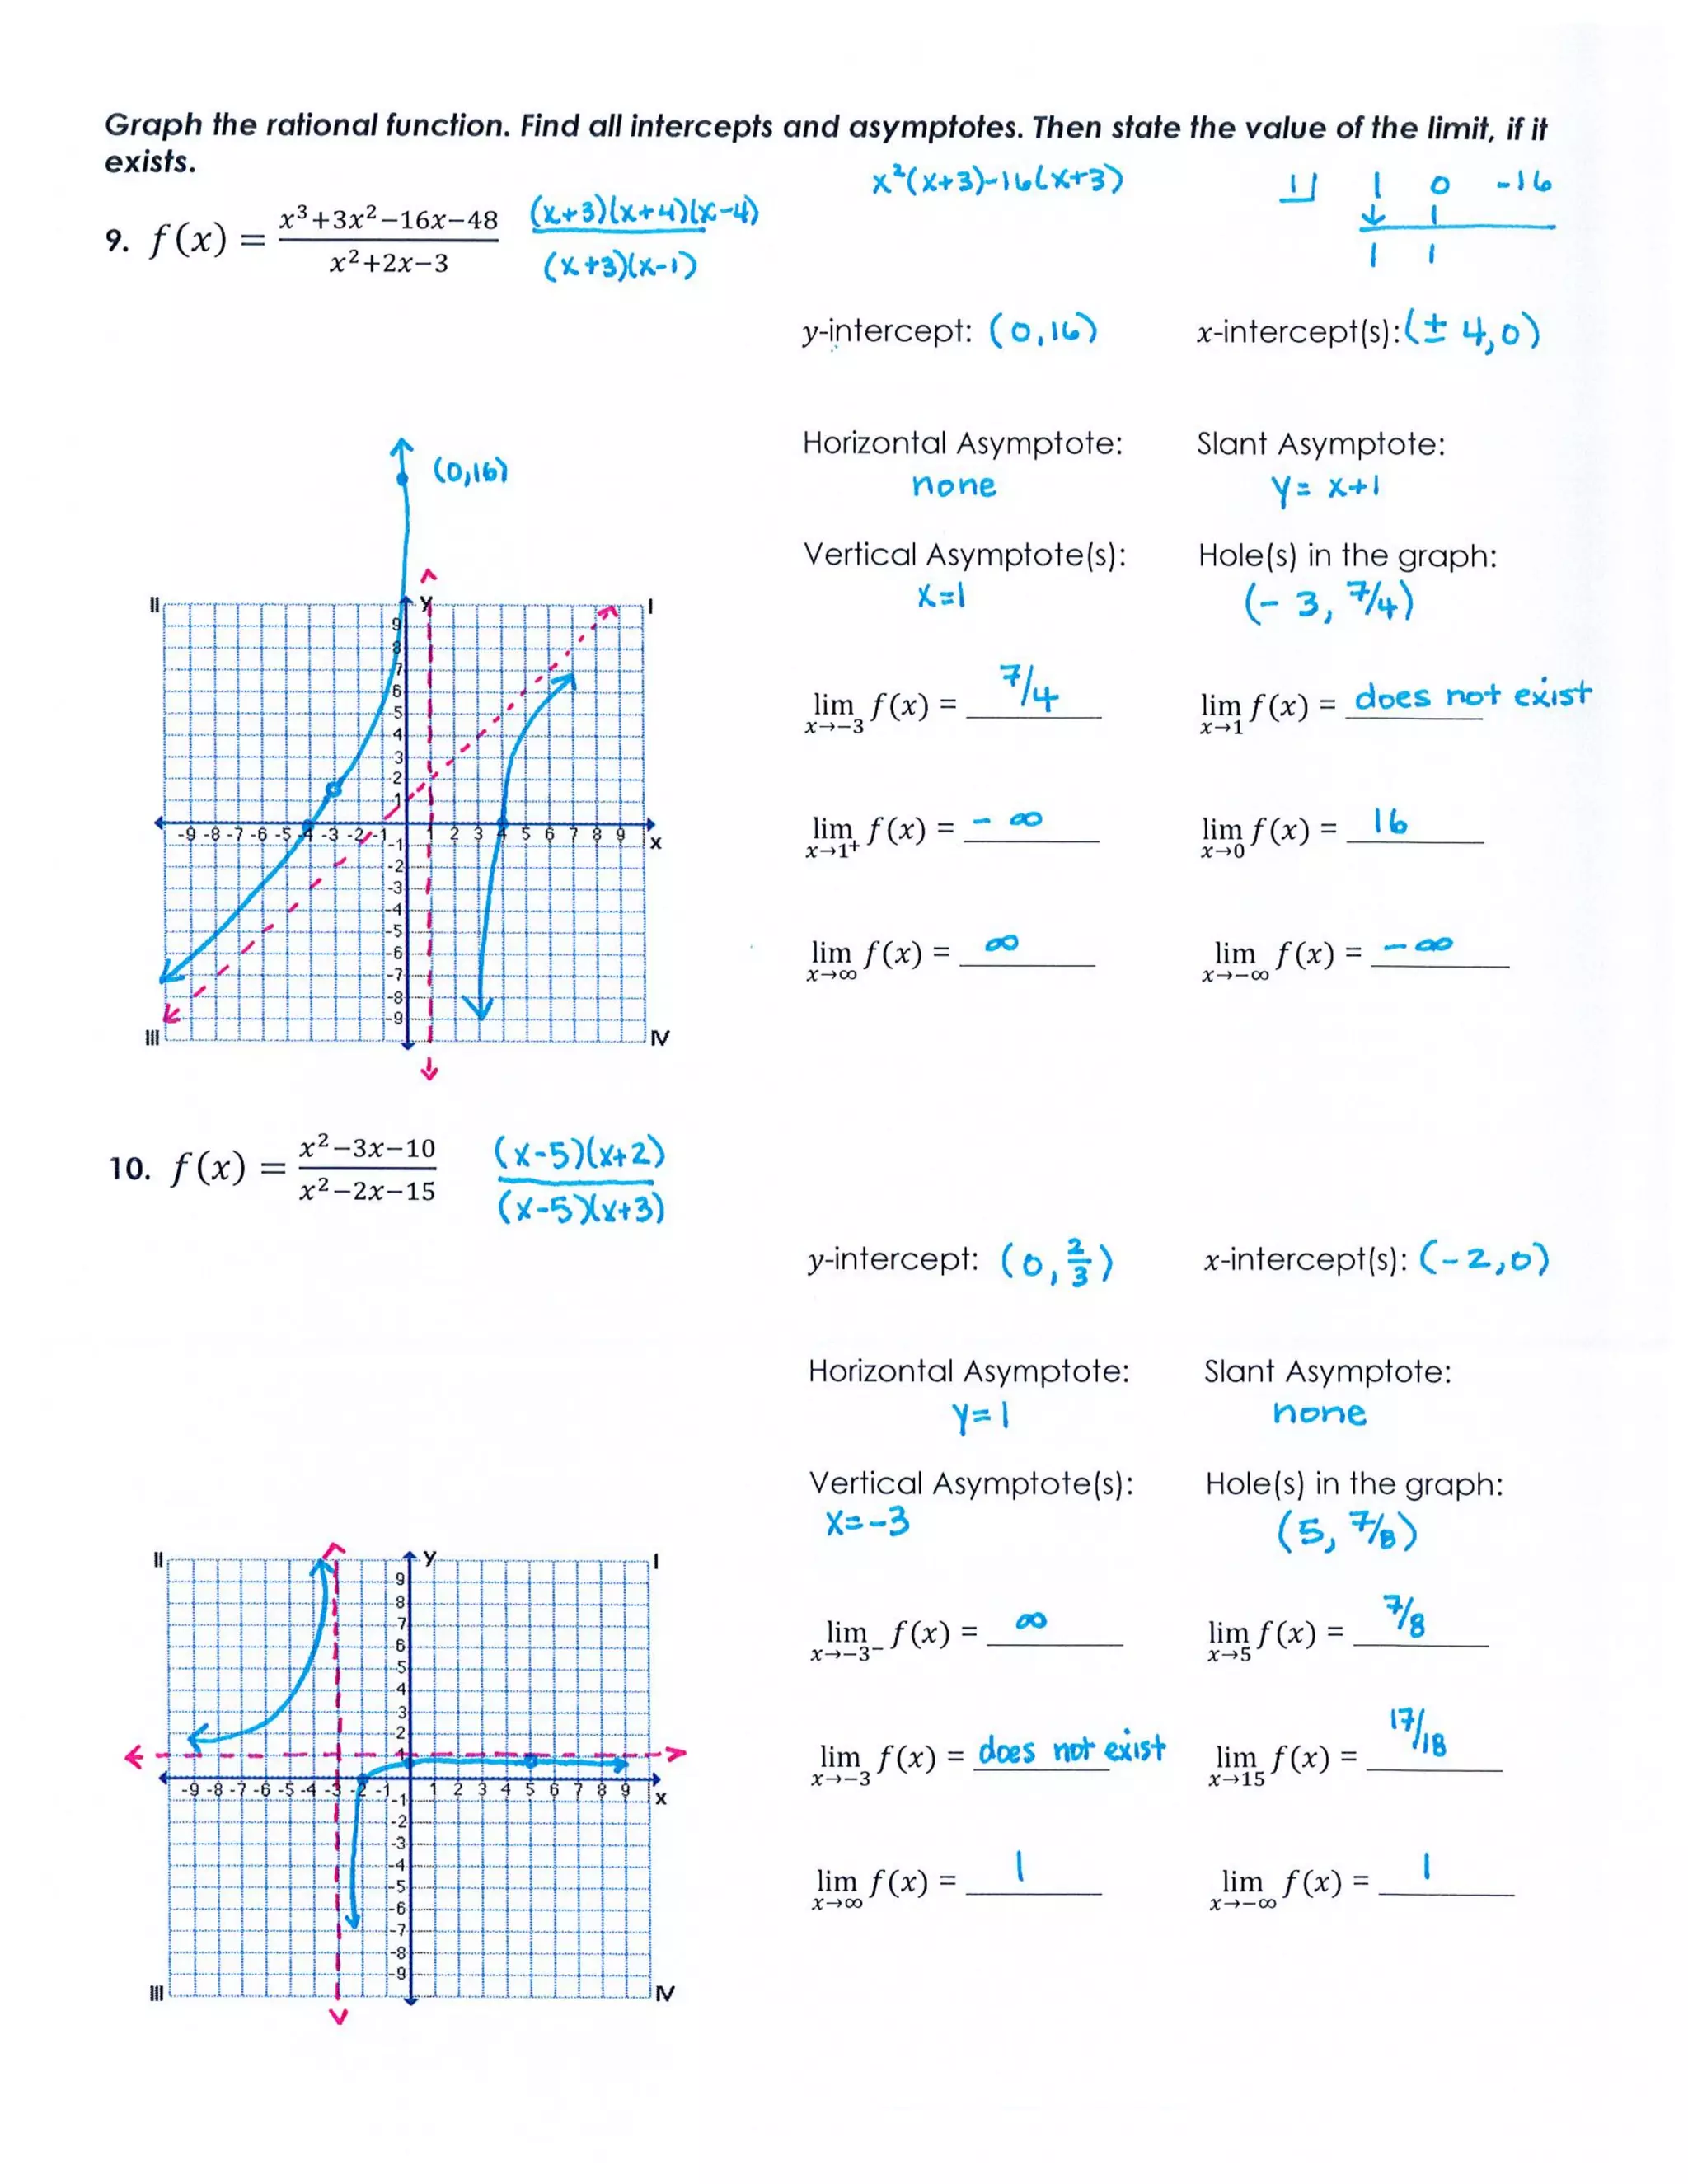 Graph the rational function. Find all intercepts and asymptotes. Then state the value of the limit, if it
exists.
x²(x+3)-16(x+3)
1| 1 0 -16
↓ 1
1 1
9. f(x) = (x³+3x²−16x−48)/(x²+2x−3) (x+3)(x+4)(x-4)/(x+3)(x-1)
y-intercept: (0,16) x-intercept(s): (± 4,0)
(0,16)
Horizontal Asymptote: Slant Asymptote:
none y = x+1
Vertical Asymptote(s): Hole(s) in the graph:
x=1 (-3, 7/4)
II y I
9
8
7
6
5
4
3
2
1
-9 -8 -7 -6 -5 -4 -3 -2 -1 1 2 3 4 5 6 7 8 9 x
-1
-2
-3
-4
-5
-6
-7
-8
-9
III IV
lim x→−3 f(x) = 7/4 lim x→1 f(x) = does not exist
lim x→1⁺ f(x) = -∞ lim x→0 f(x) = 16
lim x→∞ f(x) = ∞ lim x→−∞ f(x) = -∞
10. f(x) = (x²−3x−10)/(x²−2x−15) (x-5)(x+2)/(x-5)(x+3)
y-intercept: (0, 2/3) x-intercept(s): (-2,0)
Horizontal Asymptote: Slant Asymptote:
y=1 none
Vertical Asymptote(s): Hole(s) in the graph:
x=-3 (5, 7/8)
II y I
9
8
7
6
5
4
3
2
1
-9 -8 -7 -6 -5 -4 -3 -2 -1 1 2 3 4 5 6 7 8 9 x
-1
-2
-3
-4
-5
-6
-7
-8
-9
III IV
lim x→−3⁻ f(x) = ∞ lim x→5 f(x) = 7/8
lim x→−3 f(x) = does not exist lim x→15 f(x) = 17/18
lim x→∞ f(x) = 1 lim x→−∞ f(x) = 1